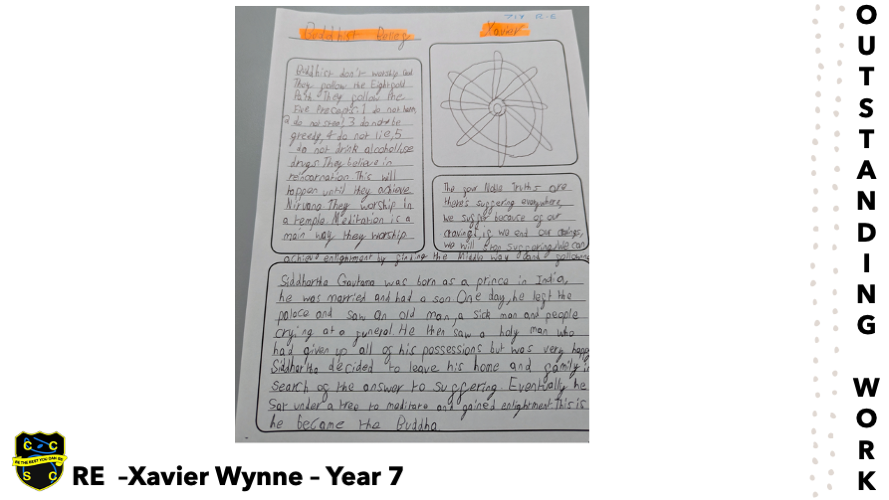 7IX R-E
Buddhist Belief
Xavier
Buddhist don't worship God
They follow the Eightfold
Path They follow the
Five Precepts: 1 do not harm,
2 do not steal, 3 do not be
greedy, 4 do not lie, 5
do not drink alcohol/use
drugs They believe in
reincarnation This will
happen until they achieve
Nirvana They worship in
a temple Meditation is a
main way they worship
The four Noble Truths are
there's suffering everywhere,
we suffer because of our
cravings, if we end our cravings,
we will stop suffering. We can
achieve enlightenment by finding the Middle Way and following
Siddhartha Gautama was born as a prince in India,
he was married and had a son One day, he left the
palace and saw an old man, a sick man and people
crying at a funeral. He then saw a holy man who
had given up all of his possessions but was very happy
Siddhartha decided to leave his home and family in
search of the answer to suffering Eventually he
sat under a tree to meditate and gained enlightment This is
he became the Buddha
OUTSTANDING
WORK
C C
BE THE BEST YOU CAN BE
S C
RE –Xavier Wynne – Year 7